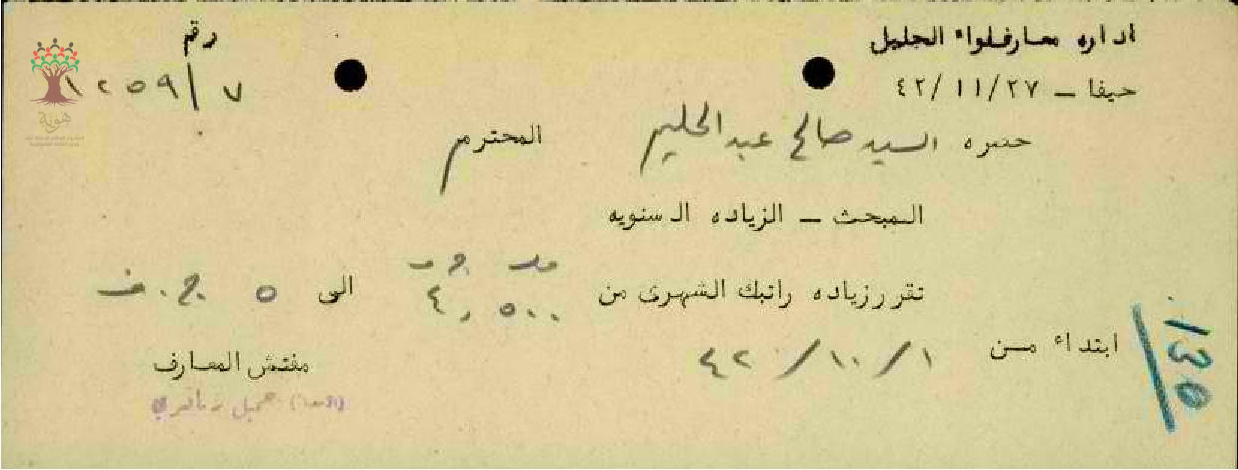 اداره معارف لواء الجليل
رقم
٧/١٢٥٩
حيفا — ٤٢/١١/٢٧
حضره السيد صالح عبد الحليم المحترم
المبحث — الزياده السنويه
مل ج
تقرر زياده راتبك الشهرى من ٤,٥٠٠ الى ٥ ج.ف
ابتداء من ٤٢/١٠/١
مفتش المعارف
جميل
هوية